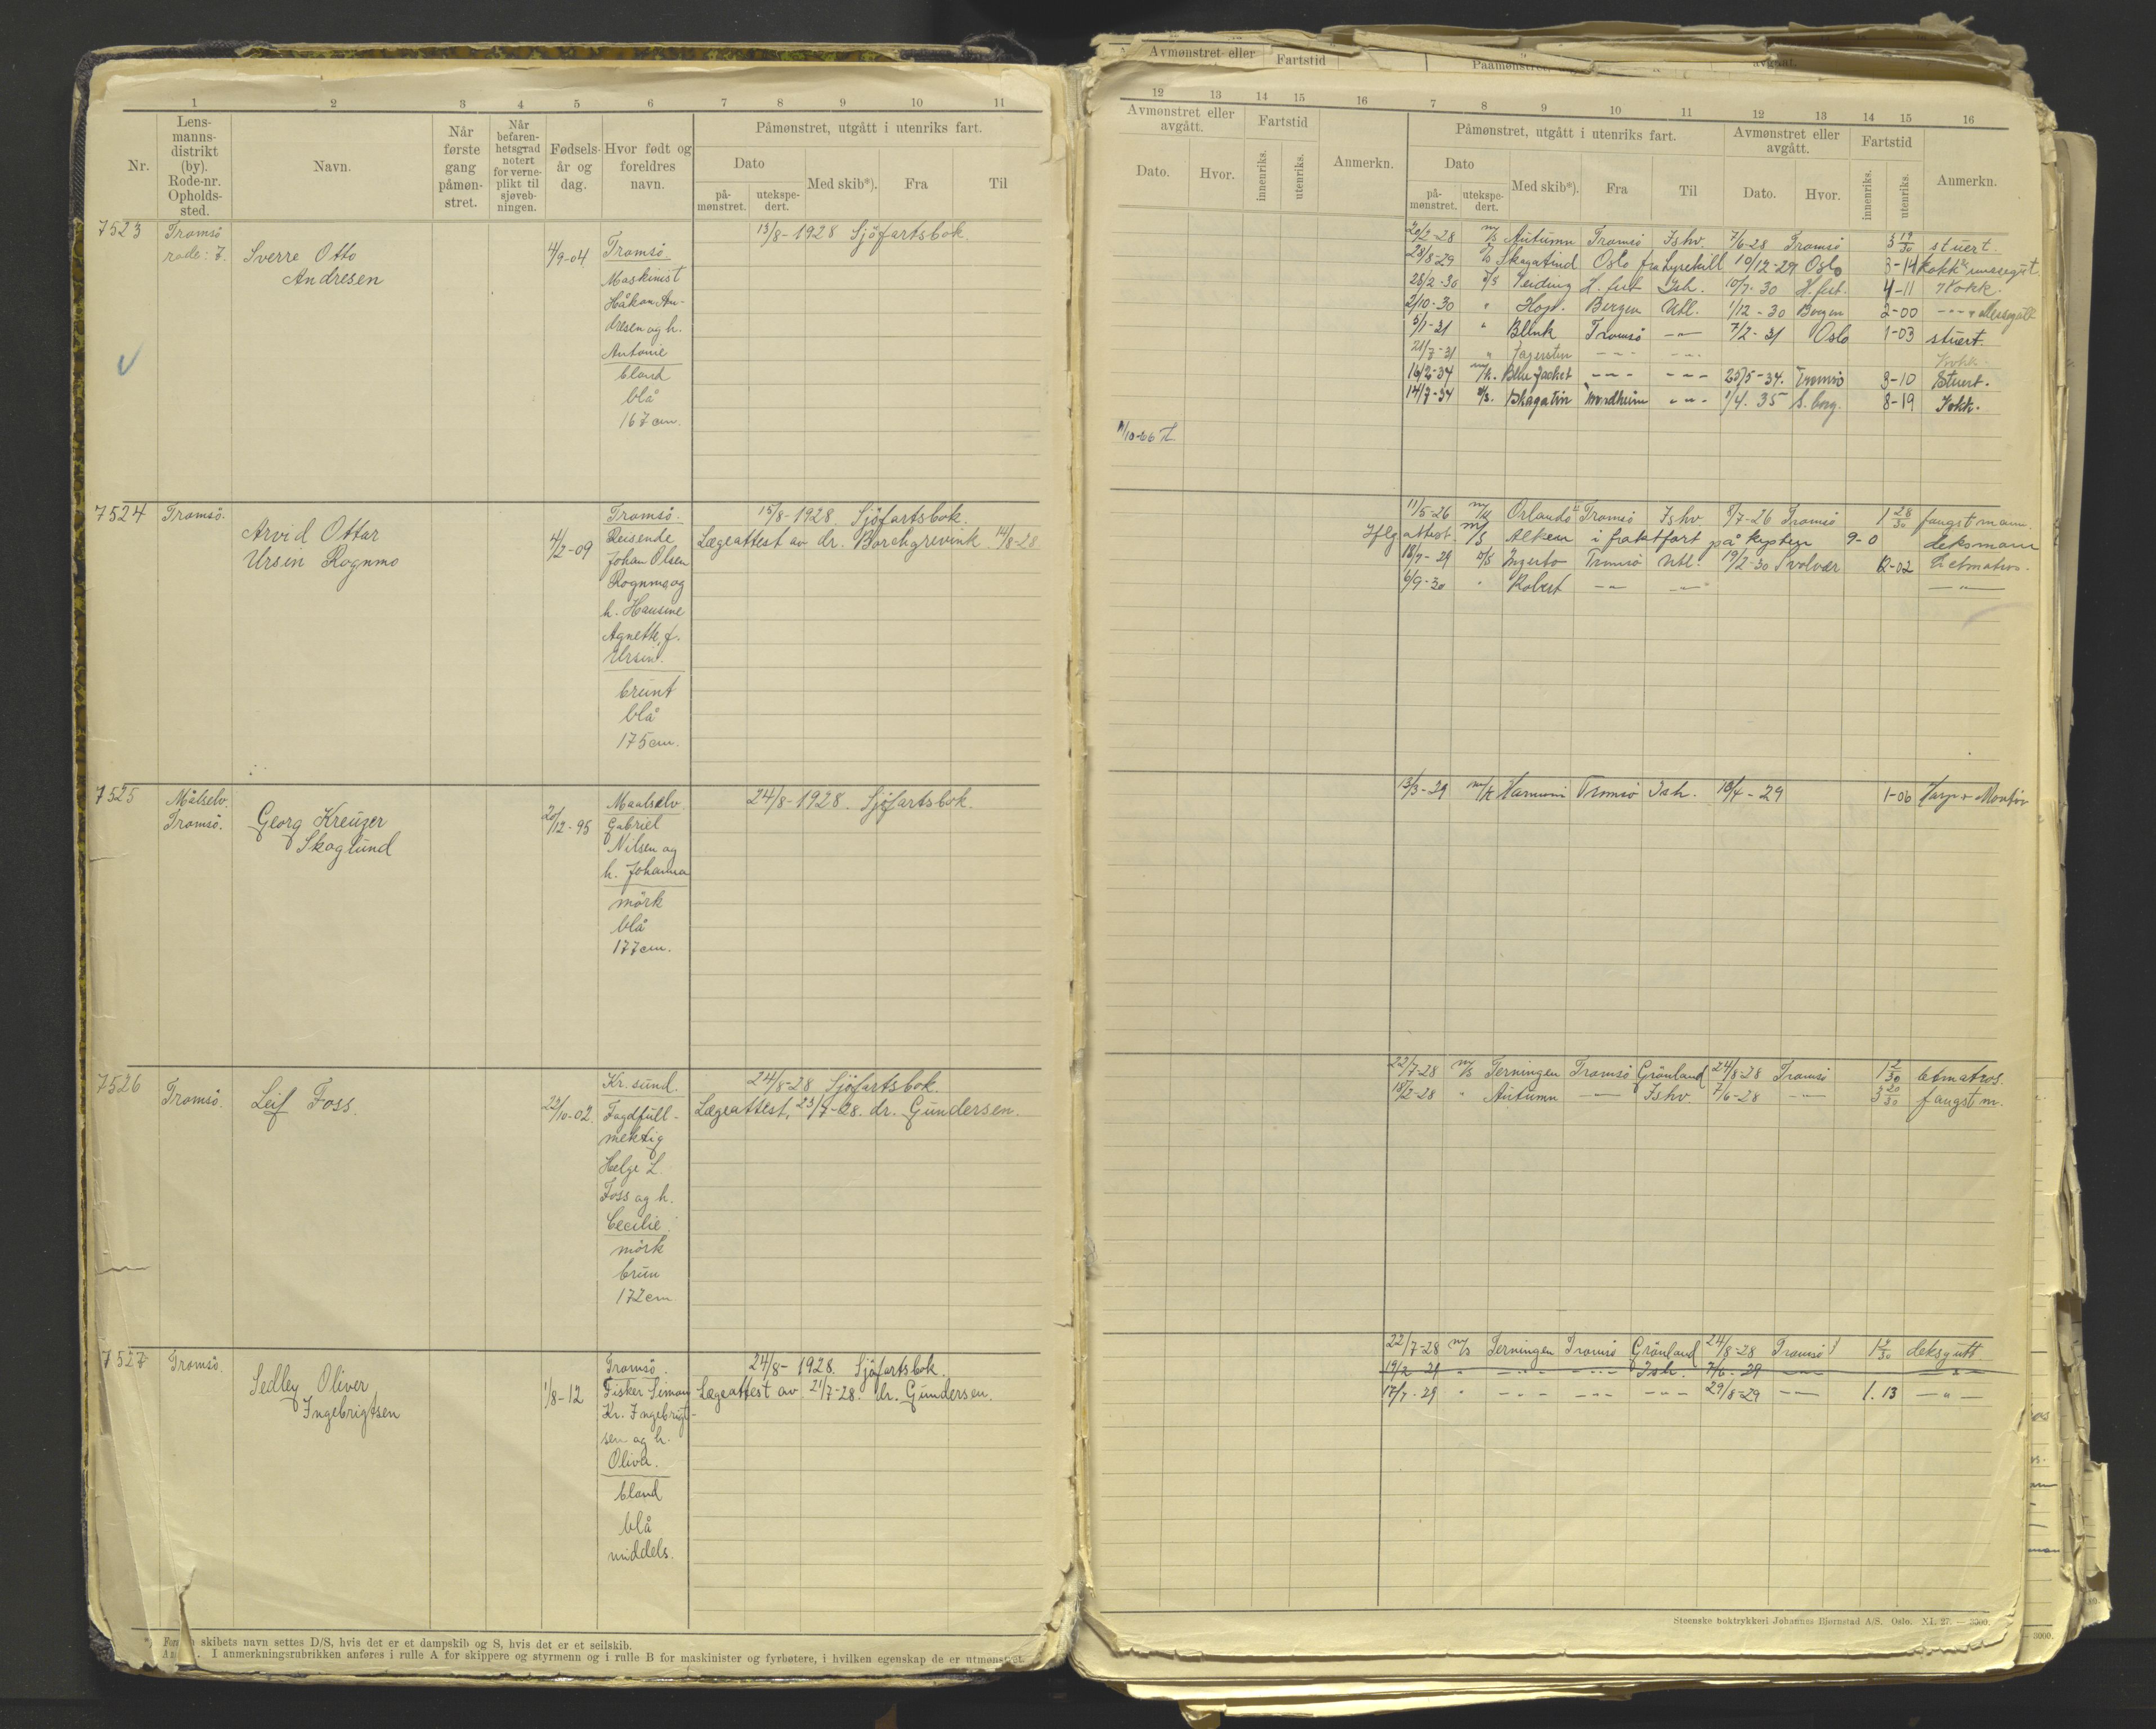 1 2 3 4 5 6 7 8 9 10 11
Nr.
Lens-
manns-
distrikt
(by).
Rode-nr.
Opholds-
sted.
Navn.
Når
første
gang
påmøn-
stret.
Når
befaren-
hetsgrad
notert
for verne-
plikt til
sjøveb-
ningen.
Fødsels-
år og
dag.
Hvor født og
foreldres
navn.
Påmønstret, utgått i utenriks fart.
Dato
på-
mønstret.
utekspe-
dert.
Med skib*).
Fra
Til
7523
Tromsö
rode: 7.
Sverre Otto
Andresen
4/9-04
Tromsö
Maskinist
Håkon An-
dresen og h.
Antonie
blond
blå
167 cm.
13/8-1928 Sjöfartsbok
7524
Tromsö.
Arvid Ottar
Ursin Rognmo
4/2-09
Tromsö.
Reisende
Johan Olsen
Rognmo og
h. Hansine
Agnette, f.
Ursin.
brunt
blå
175 cm.
15/8-1928 Sjöfartsbok.
Lægeattest av dr. Borchgrevink 14/8-28
7525
Målselv.
Tromsö.
Georg Kreüzer
Skoglund
20/12-95
Maalselv
Gabriel
Nilsen og
h. Johanna
mörk
blå
177 cm.
24/8-1928. Sjöfartsbok.
7526
Tromsö.
Leif Foss.
22/10-02.
Kr.sund.
Fogdfull-
mektig
Helge L.
Foss og h.
Cecilie.
mörk
brun
172 cm
24/8-28 Sjöfartsbok.
Lægeattest, 23/7-28. dr. Gundersen.
7527
Tromsö.
Sedley Oliver
Ingebrigtsen
1/8-12
Tromsö.
Fisker Simon
Kr. Ingebrigt-
sen og h.
Oliva.
blond
blå
middels.
24/8-1928. Sjöfartsbok
Lægeattest av 21/7-28. dr. Gundersen.
skibets navn settes D/S, hvis det er et dampskib og S, hvis det er et seilskib.
I anmerkningsrubrikken anføres i rulle A for skippere og styrmenn og i rulle B for maskinister og fyrbøtere, i hvilken egenskap de er utmønstret.
Avmønstret eller
Fartstid
12 13 14 15 16 7 8 9 10 11 12 13 14 15 16
Avmønstret eller
avgått.
Dato.
Hvor.
Fartstid
innenriks.
utenriks.
Anmerkn.
Påmønstret, utgått i utenriks fart.
Dato
på-
mønstret.
utekspe-
dert.
Med skib*).
Fra
Til
Avmønstret eller
avgått.
Dato.
Hvor.
Fartstid
innenriks.
utenriks.
Anmerkn.
20/2-28 m/s Autumn Tromsö Ishv. 7/6-28 Tromsö 3 19/30 stuert.
28/8-29 Skagatind Oslo fra Lysekill 10/12-29 Oslo 3-14 kokk
28/2-30 Veiding H.fest Ish. 10/7-30 H.fest. 4-11 Kokk.
2/10-30 " Hop. Bergen Utl. 1/12-30 Bergen 2-00
5/1-31 " Blink Tromsö -"- 7/2-31 Oslo 1-03 stuert.
Kokk.
16/2-34 m/k. Blue Jacket -"- -"- 25/5-34. Tromsö 3-10 Stuert.
14/7-34 Skagatin Trondheim -"- 1/4.35 S.borg. 8-19 Kokk.
11/5-26 m/k Orlando II Tromsö Ishv 8/7-26 Tromsö 1 28/30 fangstmann.
Iflg attest m/s Alken i fraktfart på kysten 9-0 deksmann
18/7-29 Ingerto Tromsö Utl. 19/2-30 Svolvær Letmatros.
6/9-30 " Robert -"- -"- -"-
13/3-29 m/k Harmoni Tromsö Ish. 18/4-29 1-06
22/7-28 m/s Terningen Tromsö Grönland 24/8-28 Tromsö 1 2/30 letmatros.
18/2-28 " Autumn -"- Ishv. 7/6-28 -"- 3 20/30 fangstm.
22/7-28 m/s Terningen Tromsö Grönland 24/8-28 Tromsö 1 2/30 deksgutt
19/2-29 -"- -"- Ish. 7/6-29 -"- -"-
17/7-29 " -"- -"- -"- 29/8-29 -"- 1.13 -"-
Steenske boktrykkeri Johannes Bjørnstad A/S. Oslo. XI. 27. — 3000.